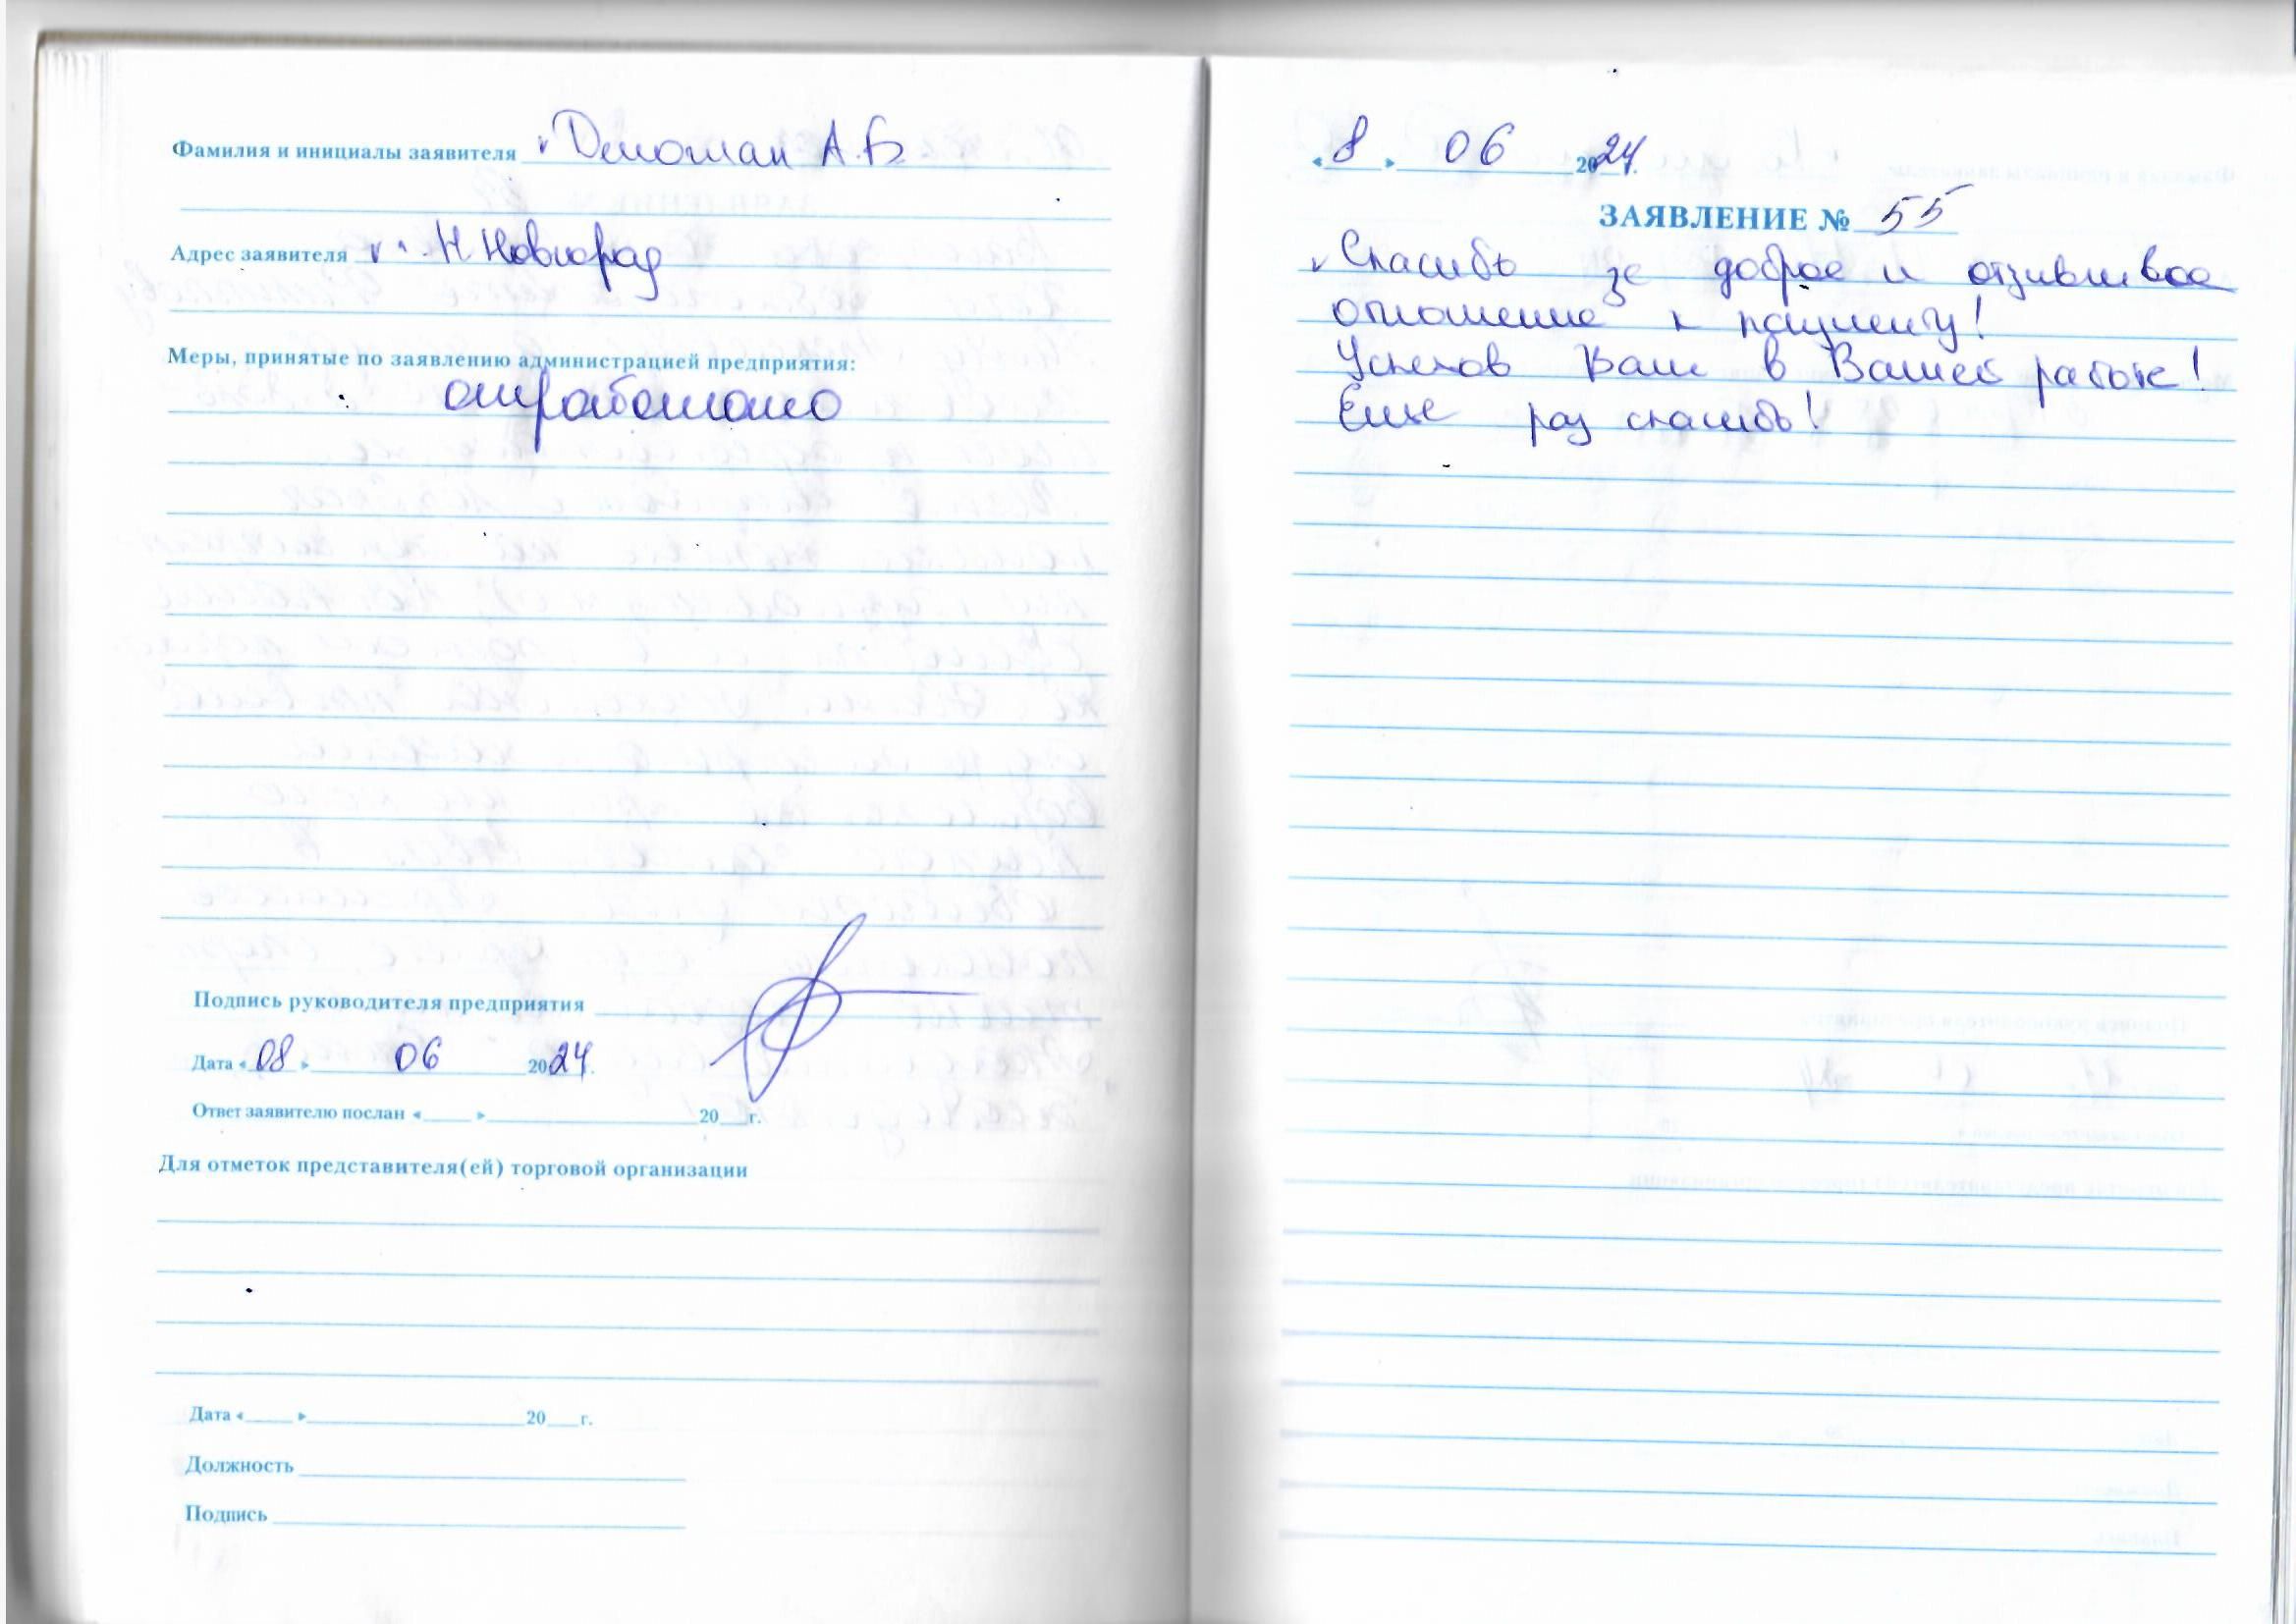 Фамилия и инициалы заявителя А.Б.
Адрес заявителя Н.Новгород
Меры, принятые по заявлению администрацией предприятия:
отработано
Подпись руководителя предприятия
Дата «08» 06 2024.
Ответ заявителю послан «___» 20__г.
Для отметок представителя(ей) торговой организации
Дата «___» 20__г.
Должность
Подпись
«8» 06 2024.
ЗАЯВЛЕНИЕ № 55
Спасибо за доброе и отзывчивое
отношение к пациенту!
Успехов Вам в Вашей работе!
Еще раз спасибо!